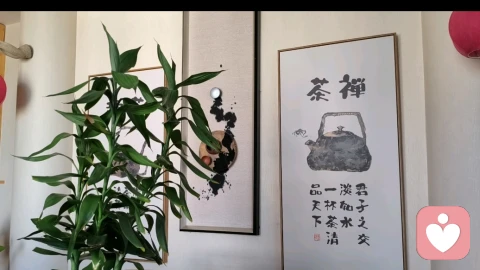 禪茶
君子之交
淡如水
一杯茶清
品天下